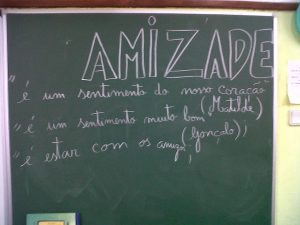 AMIZADE
" é um sentimento do nosso coração
(Matilde)
" é um sentimento muito bom
(Gonçalo)!
" é estar com os amigos
!